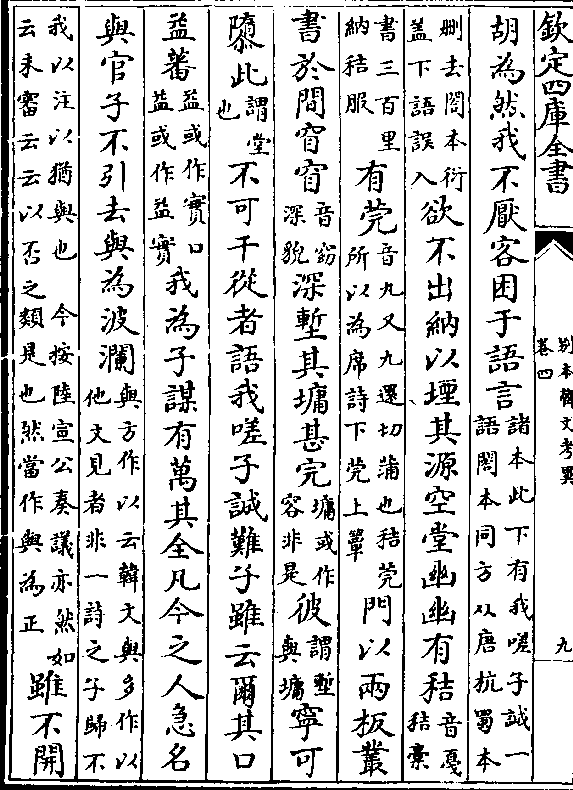 欽定四庫全書
别本韓文考異
卷四
九
胡為然我不厭客困于語言諸本此下有我嗟子誠一語閣本同方从唐杭蜀本
删去閣本衍盖下語誤入欲不出納以堙其源空堂幽幽有秸音戛秸槀
書三百里納秸服有莞音九又九還切蒲也秸莞所以為席詩下莞上簟門以兩板叢
書於間窅窅音窈深貌深塹其墉甚完墉或作容非是彼謂塹與墉寧可
隳此謂堂也不可干從者語我嗟子誠難子雖云爾其口
益蕃益或作實口益或作益實我為子謀有萬其全凡今之人急名
與官子不引去與為波瀾與方作以云韓文與多作以他文見者非一詩之子歸不
我以注以猶與也 今按陸宣公奏議亦然如云未審云云以否之類是也然當作與為正雖不開